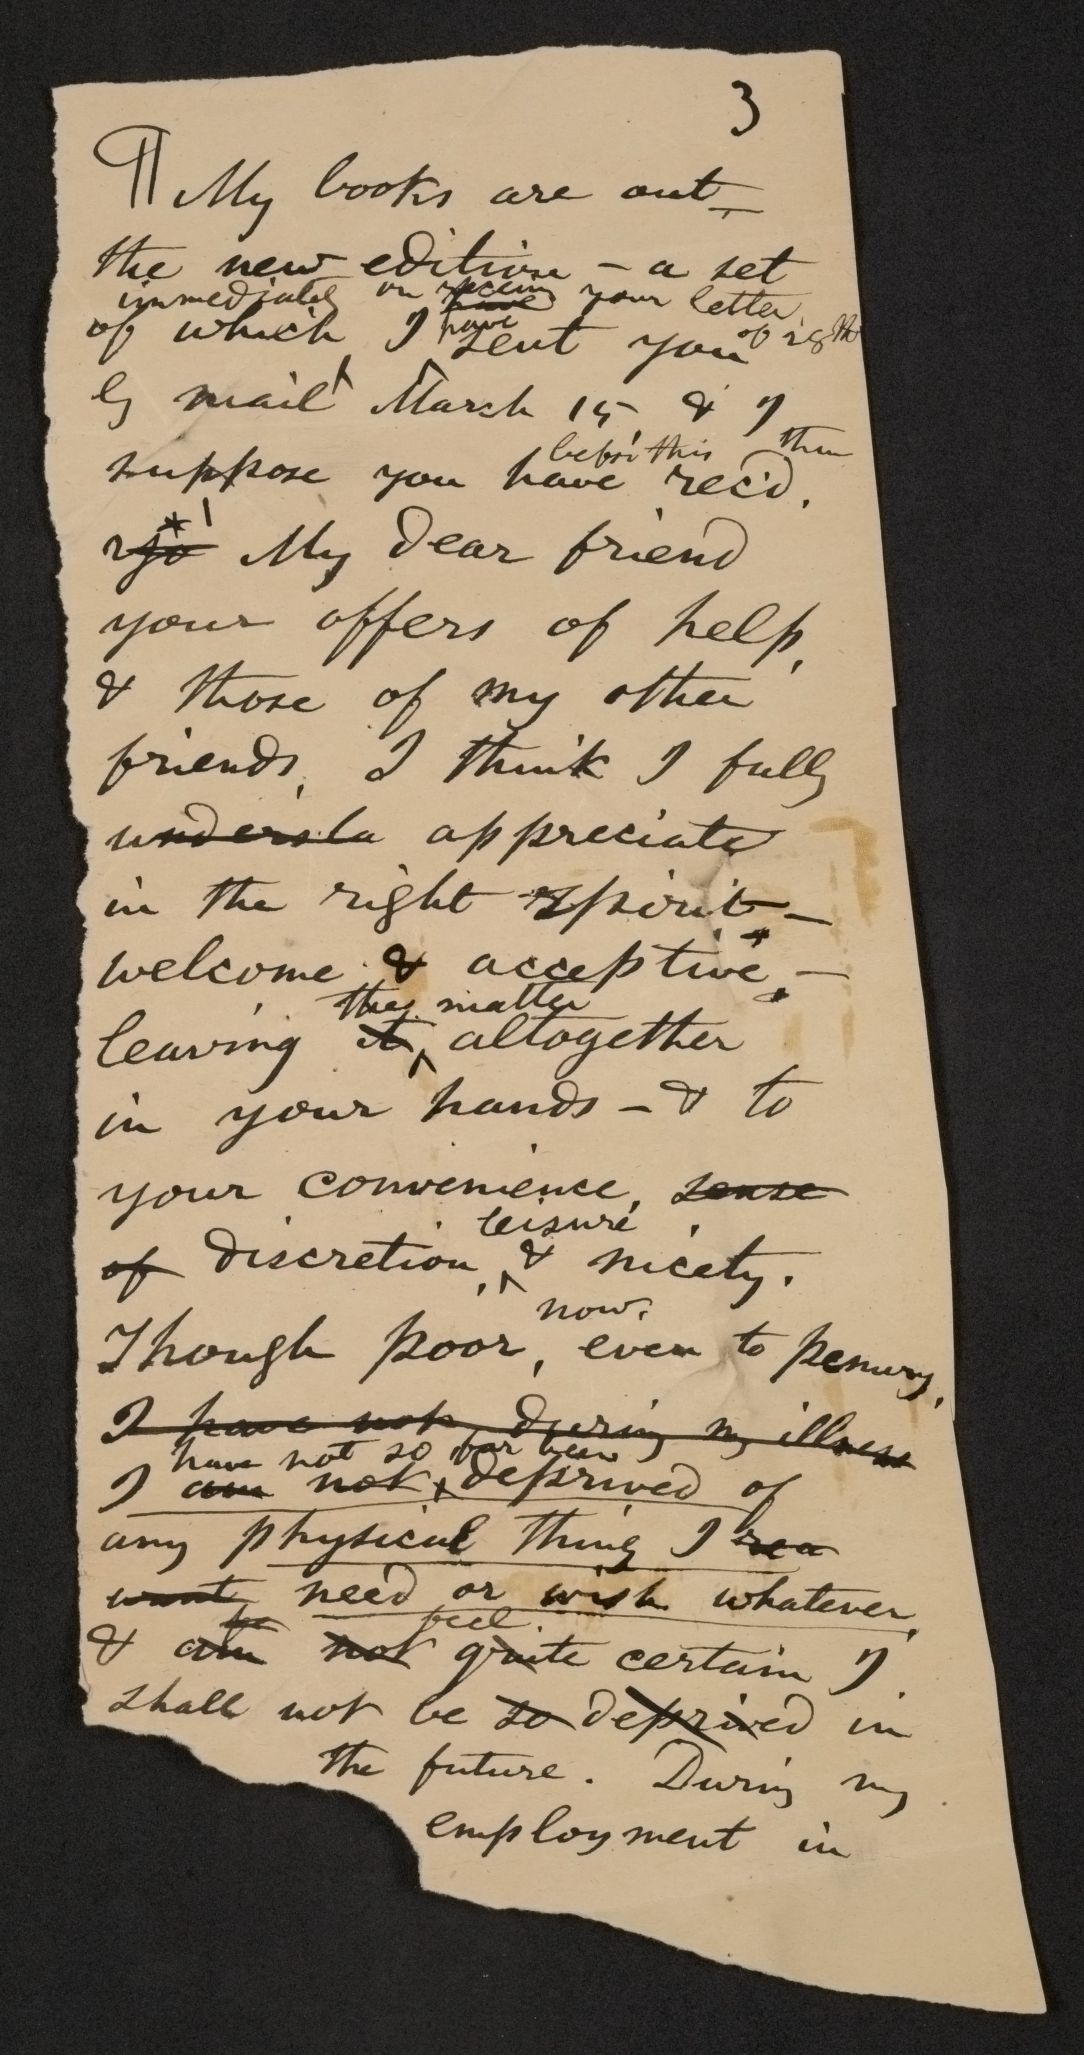 3
¶ My books are out—
the new edition – a set
immediately on receiving your letter
of 28th
of which I have sent you
have
by mail March 15, & I
before this them
suppose you have rec'd.
My dear friend
your offers of help,
& those of my other
friends, I think I fully
understa appreciate
in the right spirit –
welcome & acceptive –
the matter
leaving it altogether
in your hands – & to
your convenience, sense
leisure
of discretion, & nicety.
now,
Though poor, even to penury,
I have not, during my illness
have not so far been
I am not deprived of
any physical thing I rea
want need or wish whatever,
be feel
& am not quite certain I
shall not be so deprived in
the future. During my
employment in